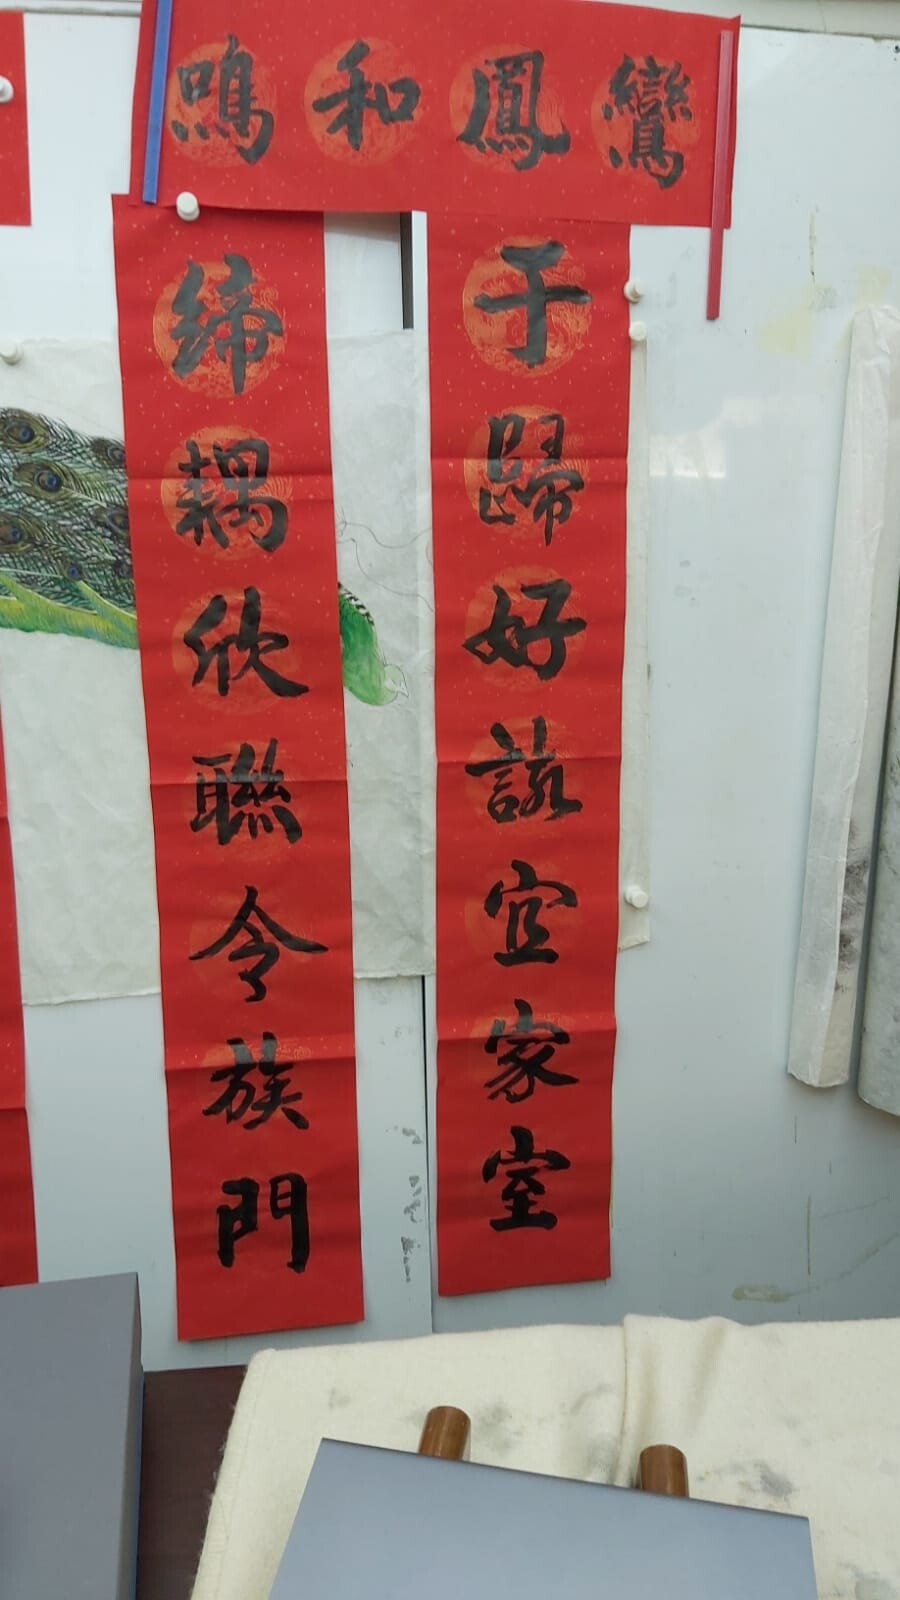 鸞鳳和鳴
于歸好詠宜家室
締耦欣聯令族門